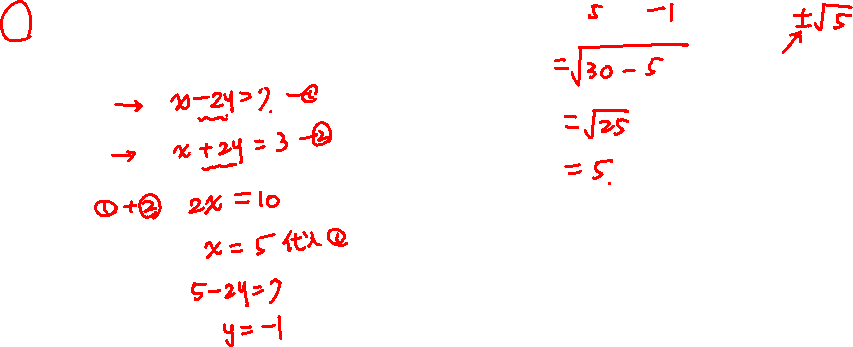 → x-2y=7. -①
→ x+2y=3-②
①+② 2x=10
x=5 代入①
5-2y=7
y=-1
5 -1
=√30-5
=√25
=5.
±√5